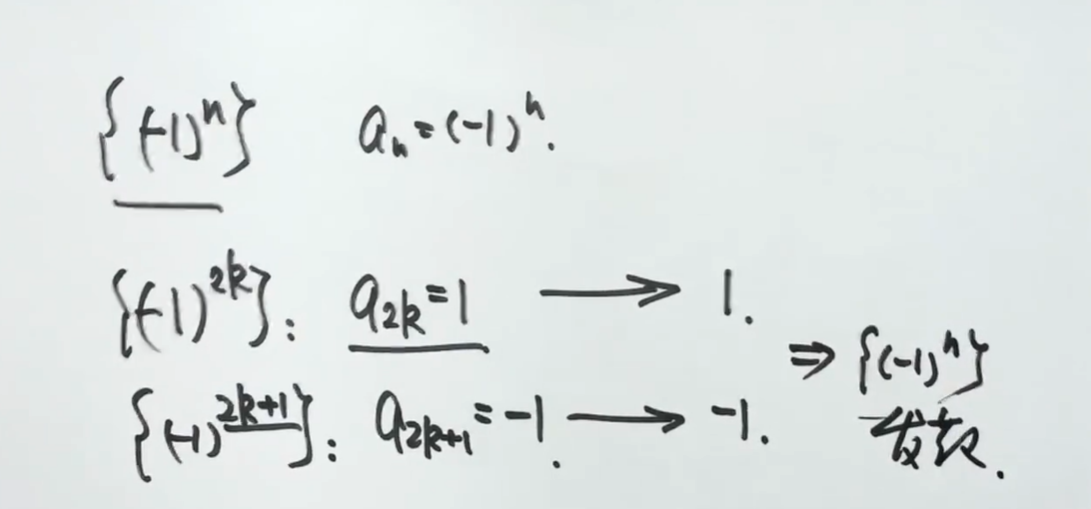 {(-1)ⁿ} aₙ=(-1)ⁿ.
{(-1)²ᵏ}: a₂ₖ=1 ⟶ 1.
⇒ {(-1)ⁿ}
{(-1)²ᵏ⁺¹}: a₂ₖ₊₁=-1. ⟶ -1.
发散.